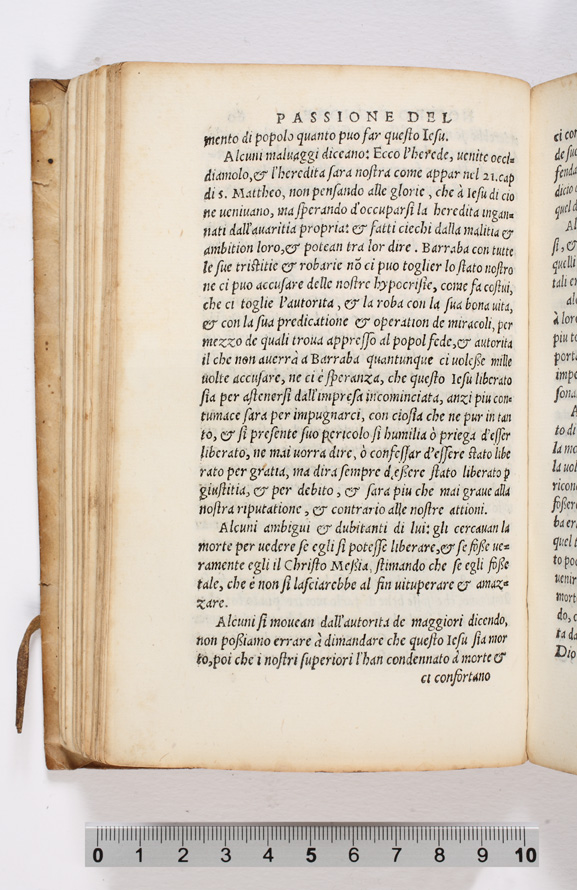 PASSIONE DEL
mento di popolo quanto puo far questo Iesu.
Alcuni maluaggi diceano: Ecco l'herede, uenite occi-
diamolo, & l'heredita sara nostra come appar nel 21. cap
di s. Mattheo, non pensando alle glorie, che à Iesu di cio
ne ueniuano, ma sperando d'occuparsi la heredita ingan-
nati dall'auaritia propria: & fatti ciechi dalla malitia &
ambition loro, & potean tra lor dire. Barraba con tutte
le sue tristitie & robarie nõ ci puo toglier lo stato nostro
ne ci puo accusare delle nostre hypocrisie, come fa costui,
che ci toglie l'autorita, & la roba con la sua bona uita,
& con la sua predicatione & operation de miracoli, per
mezzo de quali troua appresso al popol fede, & autorita
il che non auerrà a Barraba quantunque ci uolesse mille
uolte accusare, ne ci è speranza, che questo Iesu liberato
sia per astenersi dall'impresa incominciata, anzi piu con-
tumace sara per impugnarci, con ciosia che ne pur in tan
to, & si presente suo pericolo si humilia ò priega d'esser
liberato, ne mai uorra dire, ò confessar d'essere stato libe
rato per gratia, ma dira sempre d'essere stato liberato p
giustitia, & per debito, & sara piu che mai graue alla
nostra riputatione, & contrario alle nostre attioni.
Alcuni ambigui & dubitanti di lui: gli cercauan la
morte per uedere se egli si potesse liberare, & se fosse ue-
ramente egli il Christo Messia, stimando che se egli fosse
tale, che è non si lasciarebbe al fin uituperare & amaz-
zare.
Alcuni si mouean dall'autorita de maggiori dicendo,
non possiamo errare à dimandare che questo Iesu sia mor
to, poi che i nostri superiori l'han condennato à morte &
ci confortano
ci con
de suo
fenda
dicio
quel d
Al
si, &
quelli
tali e
al
à lor
piu t
port
impe
sona
A
to di
la mo
la uol
ricon
fosser
ba er
quel t
to po
uenir
mort
do, c
ta da
Dio
0 1 2 3 4 5 6 7 8 9 10